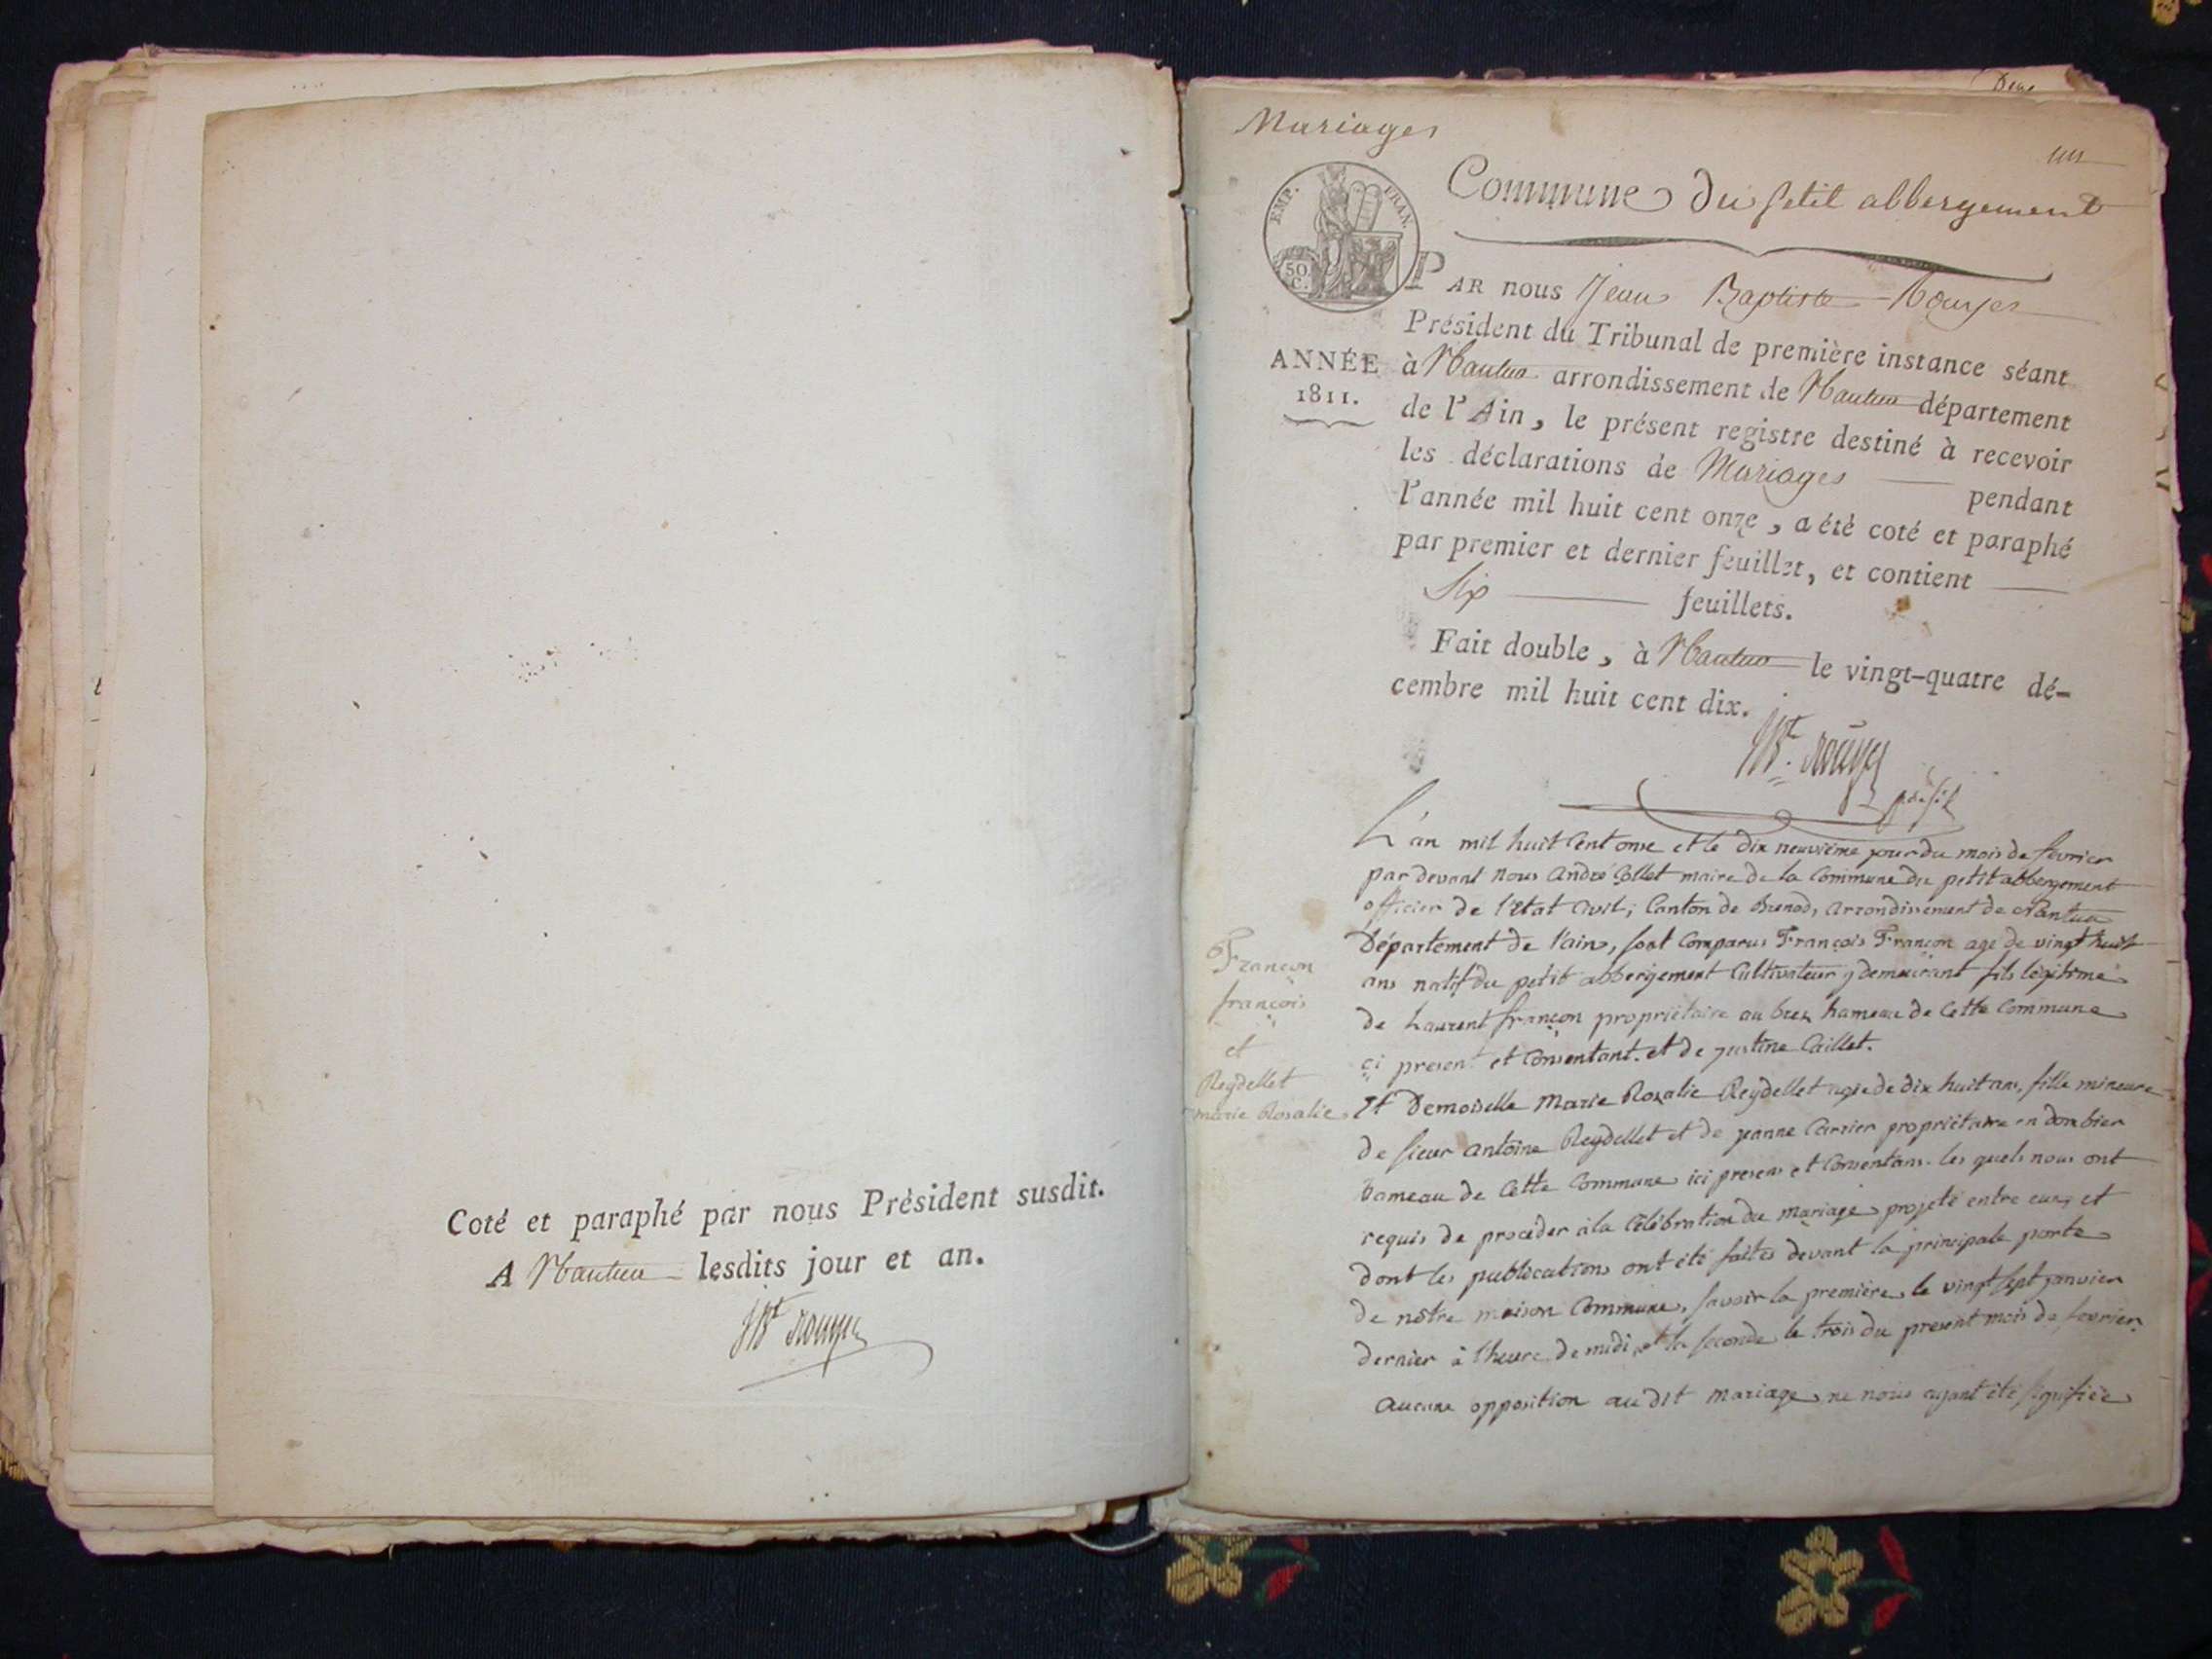 Coté et paraphé par nous Président susdit.
A Nantua lesdits jour et an.
Mariages
un
Commune du petit abbergement
EMP. FRAN.
50 C.
PAR nous Jean Baptiste
Président du Tribunal de première instance séant
ANNÉE
1811.
à Nantua arrondissement de Nantua département
de l'Ain, le présent registre destiné à recevoir
les déclarations de Mariages pendant
l'année mil huit cent onze, a été coté et paraphé
par premier et dernier feuillet, et contient
Six feuillets.
Fait double, à Nantua le vingt-quatre dé-
cembre mil huit cent dix.
L'an mil huit Cent onze et le dix neuvième jour du mois de fevrier
par devant nous andré Collet maire de la Commune du petit abbergement
officier de l'état Civil, Canton de Brenod, arrondissement de Nantua
Département de l'ain, sont Comparus François Françon agé de vingt huit
ans natif du petit abbergement Cultivateur y demeurant fils légitime
de Laurent françon propriétaire au hameau de Cette Commune
ci present et Consentant. et de justine Caillet.
Françon
françois
et
Reydellet
marie Rosalie
Et Demoiselle Marie Rosalie Reydellet agée de dix huit ans, fille mineure
de sieur antoine Reydellet et de jeanne Carrier propriétaire en
hameau de Cette Commune ici presens et Consentans. les quels nous ont
requis de procéder à la Célébration du mariage projeté entre eux, et
dont les publications ont été faites devant la principale porte
de nôtre maison Commune, savoir la premiere le vingt sept janvier
dernier à l'heure de midi, et la seconde le trois du present mois de fevrier.
aucune opposition audit mariage ne nous ayant été signifiée